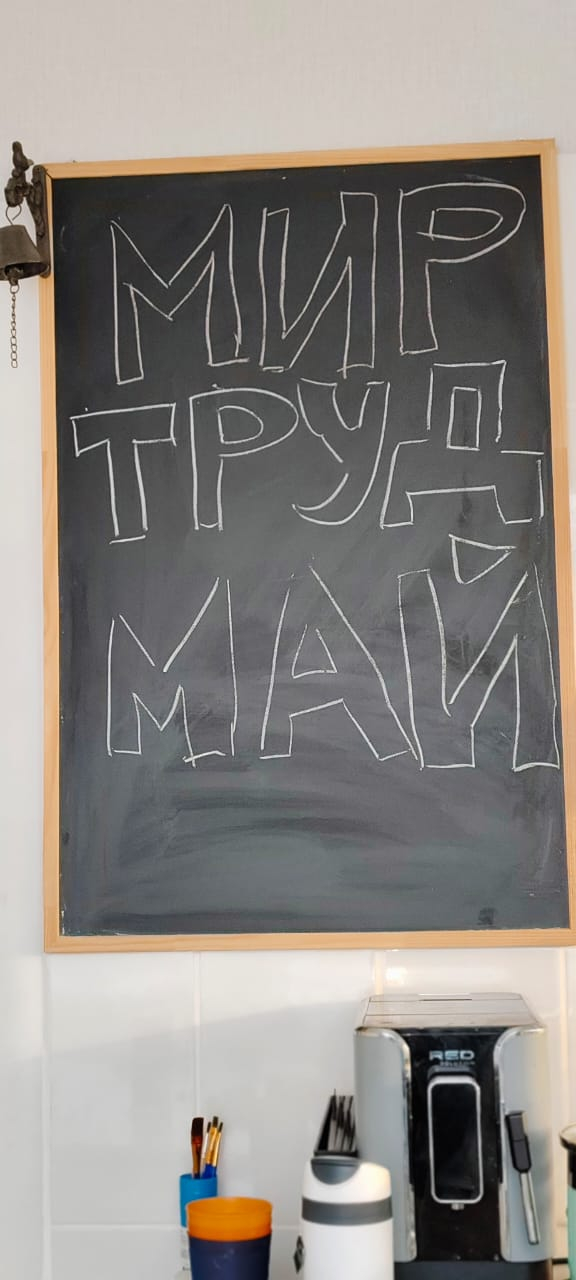 МИР
ТРУД
МАЙ
RED
SOLUTION